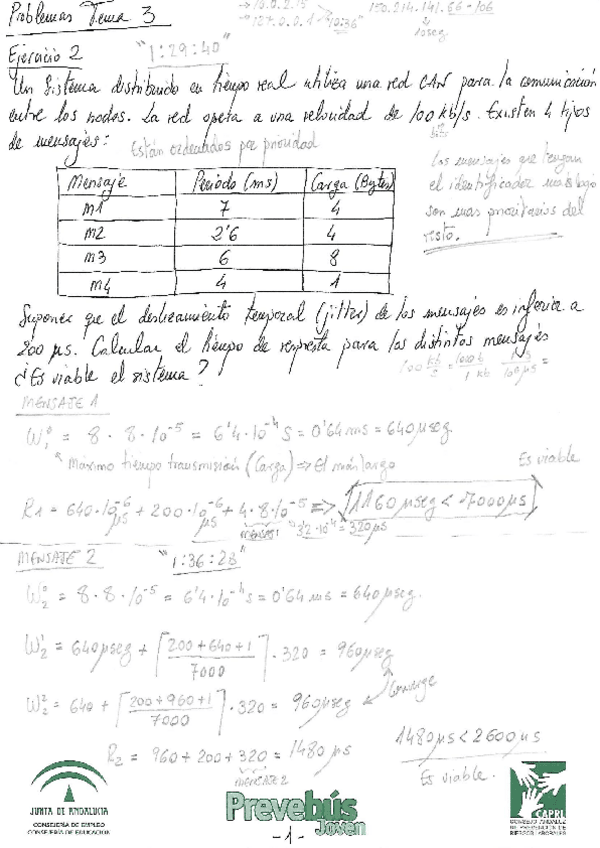 Problemas Tema 3
→ 10.0.2.15
→ 127.0.0.1 → 10.36
150.214.141.66-106
10seg
Ejercicio 2 "1:29:40"
Un Sistema distribuido en tiempo real utiliza una red CAN para la comunicación
entre los nodos. La red opera a una velocidad de 100 kb/s. Existen 4 tipos
de mensajes: Están ordenados por prioridad
bits
Los mensajes que tengan
el identificador más bajo
son mas prioritarios del
resto.
Mensaje Periodo (ms) Carga (Bytes)
m1 7 4
m2 2'6 4
m3 6 8
m4 4 1
Suponer que el deslizamiento temporal (jitter) de los mensajes es inferior a
200 µs. Calcular el tiempo de respuesta para los distintos mensajes
¿Es viable el sistema?
MENSAJE 1
W₁⁰ = 8 · 8 · 10⁻⁵ = 6'4 · 10⁻⁴ s = 0'64 ms = 640 µseg
Máximo tiempo transmisión (Carga) => El más largo
Es viable
R1 = 640·10⁻⁶ + 200·10⁻⁶ + 4·8·10⁻⁵ => 1160 µseg < 7000 µs
µs µs MENSAJE 1 "32·10⁴ = 320 µs
MENSAJE 2 "1:36:28"
W₂⁰ = 8 · 8 · 10⁻⁵ = 6'4 · 10⁻⁴ s = 0'64 ms = 640 µseg.
W₂¹ = 640 µseg + ⌈(200+640+1)/7000⌉ · 320 = 960 µseg
W₂² = 640 + ⌈(200+960+1)/7000⌉ · 320 = 960 µseg ← Converge
R₂ = 960 + 200 + 320 = 1480 µs
MENSAJE 2
1480 µs < 2600 µs
Es viable.
JUNTA DE ANDALUCIA
CONSEJERÍA DE EMPLEO
CONSEJERÍA DE EDUCACION
Prevebús
Joven
- 1 -
CAPRL
CONSEJO ANDALUZ
DE PREVENCIÓN DE
RIESGOS LABORALES